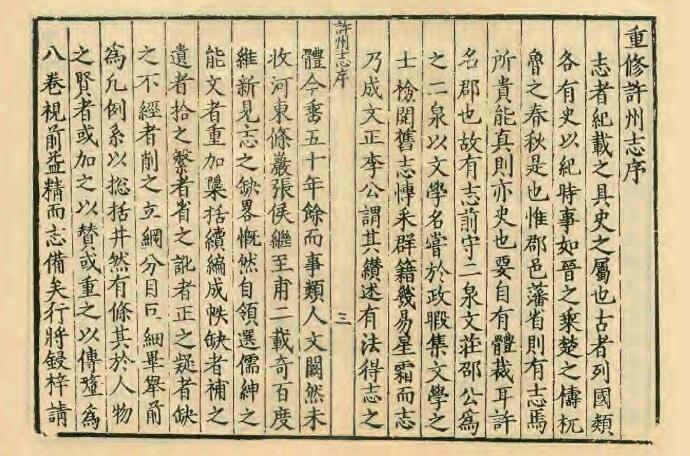 重修許州志序
志者紀載之具史之屬也古者列國類
各有史以紀時事如晉之乘楚之檮杌
魯之春秋是也惟郡邑藩省則有志焉
所貴能真則亦史也要自有體裁耳許
名郡也故有志前守二泉文莊邵公為
之二泉以文學名嘗於政暇集文學之
士檢閱舊志博采群籍幾易星霜而志
乃成文正李公謂其纘述有法得志之
許州志序
三
體今奮五十年餘而事類人文闕然未
收河東條巖張侯繼至甫二載奇百度
維新見志之缺畧慨然自領選儒紳之
能文者重加檃括續編成帙缺者補之
遺者拾之繁者省之訛者正之疑者缺
之不經者削之立綱分目巨細畢舉前
為凡例系以總括井然有條其於人物
之賢者或加之以贊或重之以傳釐為
八卷視前益精而志備矣行將鋟梓請